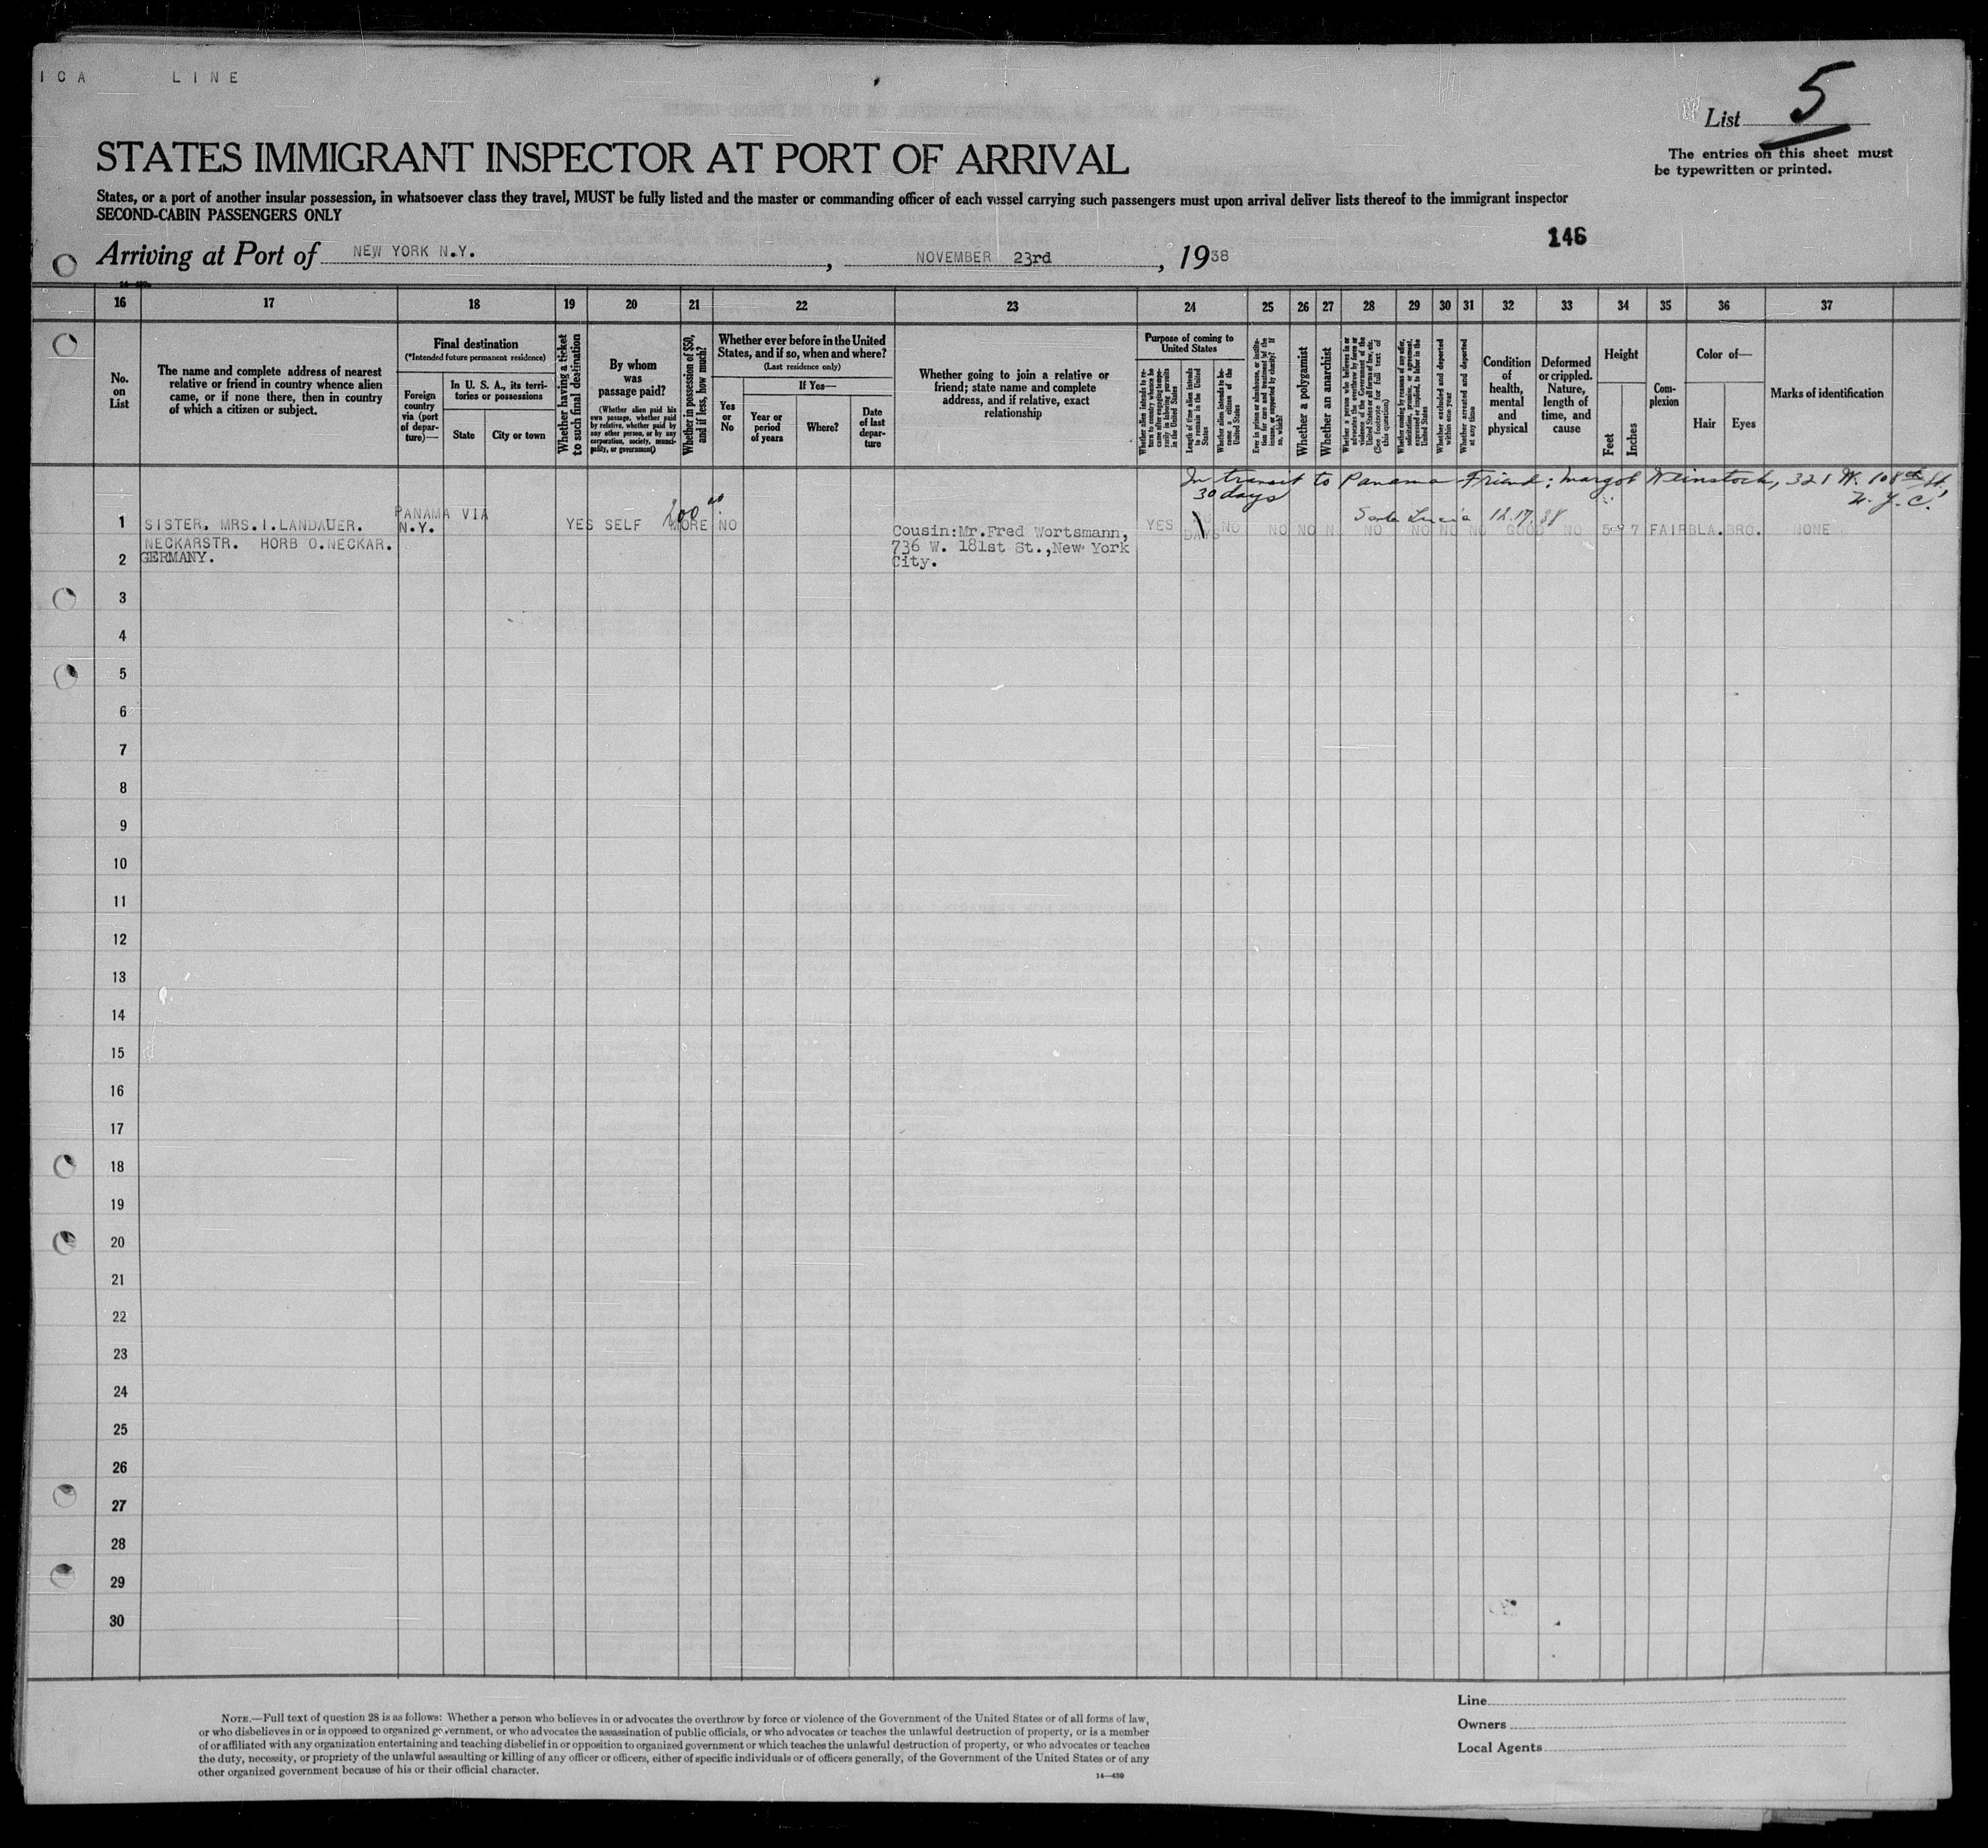 ICA LINE
List 5
The entries on this sheet must
be typewritten or printed.
STATES IMMIGRANT INSPECTOR AT PORT OF ARRIVAL
States, or a port of another insular possession, in whatsoever class they travel, MUST be fully listed and the master or commanding officer of each vessel carrying such passengers must upon arrival deliver lists thereof to the immigrant inspector
SECOND-CABIN PASSENGERS ONLY
146
Arriving at Port of NEW YORK N.Y. , NOVEMBER 23rd , 1938
16 17 18 19 20 21 22 23 24 25 26 27 28 29 30 31 32 33 34 35 36 37
No. on List
The name and complete address of nearest relative or friend in country whence alien came, or if none there, then in country of which a citizen or subject.
Final destination
(*Intended future permanent residence)
Foreign country via (port of departure)—
In U. S. A., its territories or possessions
State
City or town
Whether having a ticket to such final destination
By whom was passage paid?
(Whether alien paid his own passage, whether paid by relative, whether paid by any other person, or by any corporation, society, municipality, or government)
Whether in possession of $50, and if less, how much?
Whether ever before in the United States, and if so, when and where?
(Last residence only)
Yes or No
If Yes—
Year or period of years
Where?
Date of last departure
Whether going to join a relative or friend; state name and complete address, and if relative, exact relationship
Purpose of coming to United States
Whether alien intends to return to country whence he came after engaging temporarily in laboring pursuits in the United States
Length of time alien intends to remain in the United States
Whether alien intends to become a citizen of the United States
Ever in prison or almshouse, or institution for care and treatment of the insane, or supported by charity? If so, which?
Whether a polygamist
Whether an anarchist
Whether a person who believes in or advocates the overthrow by force or violence of the Government of the United States or all forms of law, etc. (See footnote for full text of this question)
Whether coming by reason of any offer, solicitation, promise, or agreement, expressed or implied, to labor in the United States
Whether excluded and deported within one year
Whether arrested and deported at any time
Condition of health, mental and physical
Deformed or crippled. Nature, length of time, and cause
Height
Feet
Inches
Complexion
Color of—
Hair
Eyes
Marks of identification
In transit to Panama Friend: Margot Weinstock, 321 W. 108th St.
30 days
N.Y.C.
200.00
Santa Lucia 12.17.38
1 SISTER, MRS.I.LANDAUER. PANAMA VIA N.Y. YES SELF MORE NO Cousin:Mr.Fred Wortsmann, YES DAYS NO NO NO N NO NO NO NO GOOD NO 5 7 FAIR BLA. BRO. NONE
NECKARSTR. HORB O.NECKAR. 736 W. 181st St.,New York
2 GERMANY. City.
3
4
5
6
7
8
9
10
11
12
13
14
15
16
17
18
19
20
21
22
23
24
25
26
27
28
29
30
NOTE.—Full text of question 28 is as follows: Whether a person who believes in or advocates the overthrow by force or violence of the Government of the United States or of all forms of law,
or who disbelieves in or is opposed to organized government, or who advocates the assassination of public officials, or who advocates or teaches the unlawful destruction of property, or is a member
of or affiliated with any organization entertaining and teaching disbelief in or opposition to organized government or which teaches the unlawful destruction of property, or who advocates or teaches
the duty, necessity, or propriety of the unlawful assaulting or killing of any officer or officers, either of specific individuals or of officers generally, of the Government of the United States or of any
other organized government because of his or their official character.
14—430
Line
Owners
Local Agents